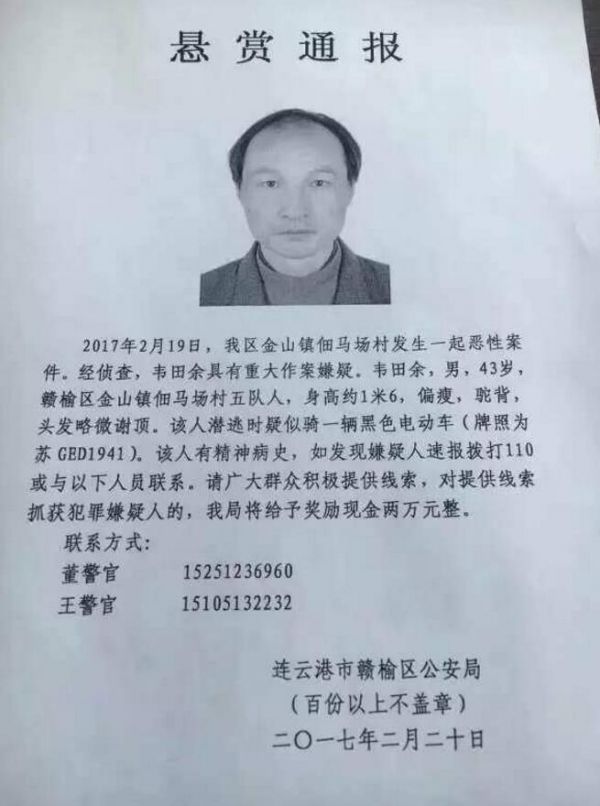 悬赏通报
2017年2月19日，我区金山镇佃马场村发生一起恶性案
件。经侦查，韦田余具有重大作案嫌疑。韦田余，男，43岁，
赣榆区金山镇佃马场村五队人，身高约1米6，偏瘦，驼背，
头发略微谢顶。该人潜逃时疑似骑一辆黑色电动车（牌照为
苏GED1941）。该人有精神病史，如发现嫌疑人速报拨打110
或与以下人员联系。请广大群众积极提供线索，对提供线索
抓获犯罪嫌疑人的，我局将给予奖励现金两万元整。
联系方式：
董警官 15251236960
王警官 15105132232
连云港市赣榆区公安局
（百份以上不盖章）
二〇一七年二月二十日